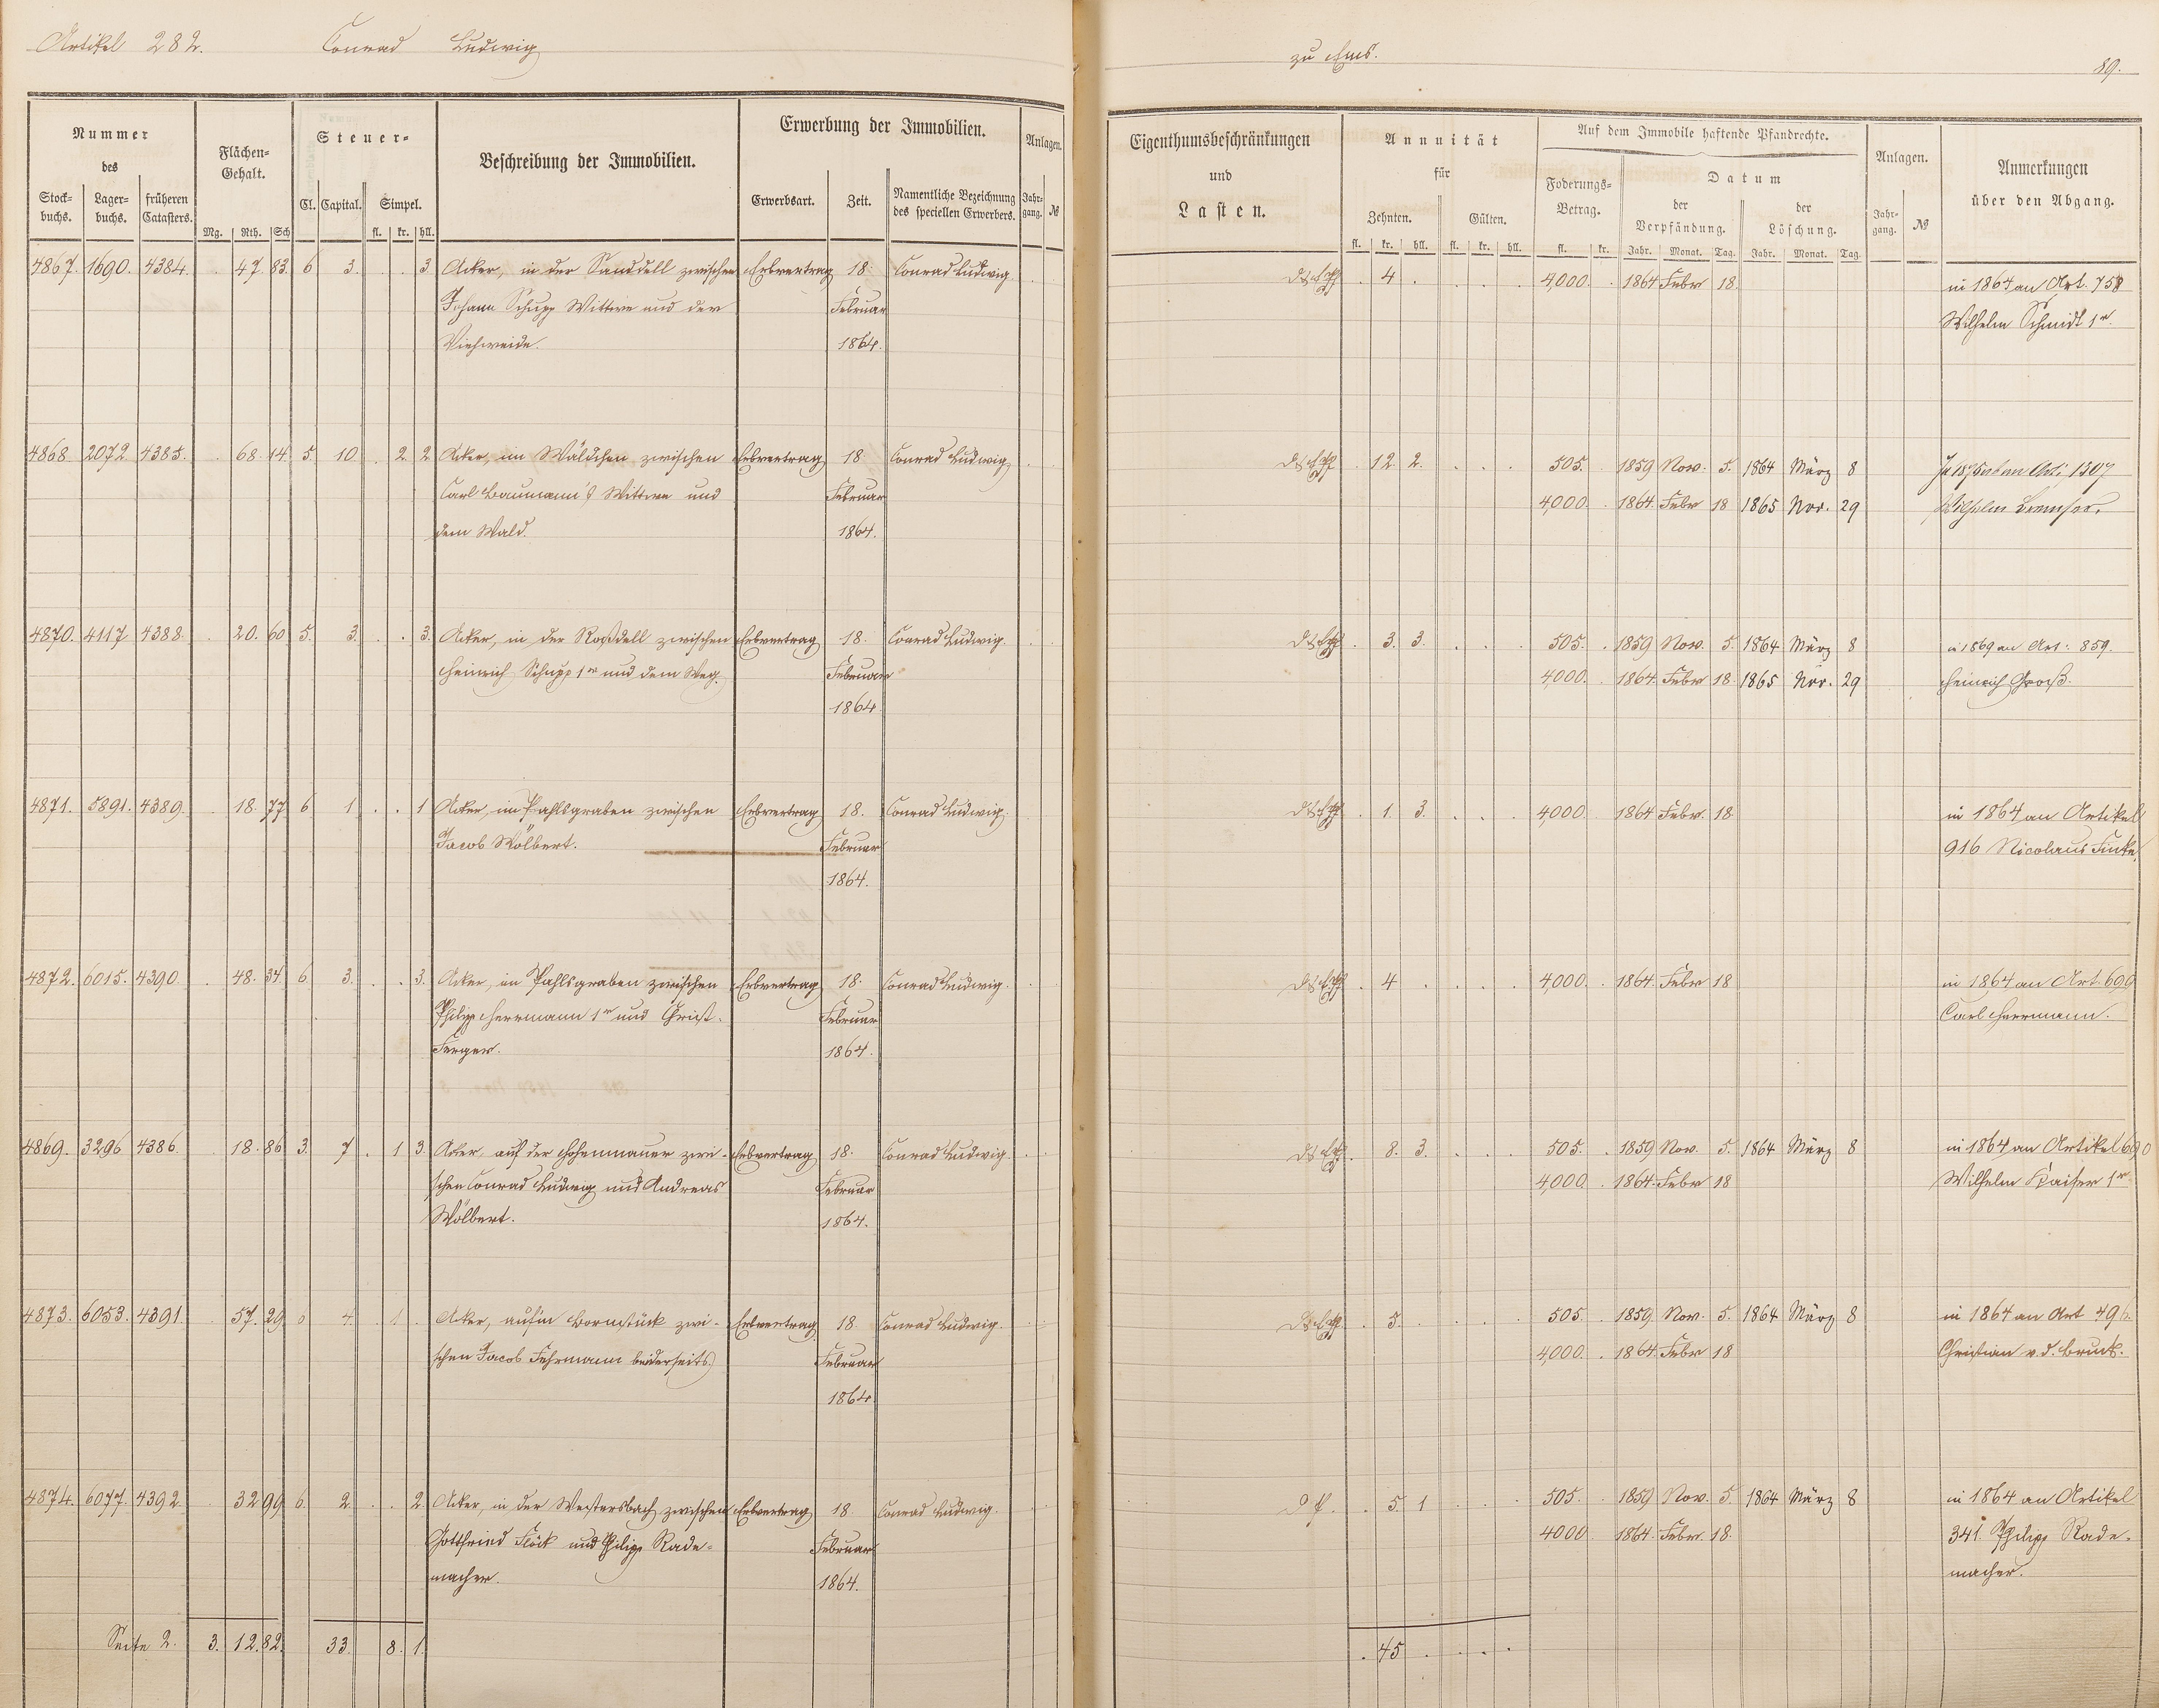 Artikel 282. Conrad Ludwig
zu Ems. 89.
Nummer des
Stock-buchs. Lager-buchs. früheren Catasters.
Flächen-Gehalt.
Mg. Rth. Sch
Steuer-
Cl. Capital. Simpel.
fl. kr. hll.
Beschreibung der Immobilien.
Erwerbung der Immobilien.
Erwerbsart. Zeit. Namentliche Bezeichnung des speciellen Erwerbers.
Anlagen.
Jahr-gang. №
Eigenthumsbeschränkungen
und
Lasten.
Annuität
für
Zehnten. Gülten.
fl. kr. hll. fl. kr. hll.
Auf dem Immobile haftende Pfandrechte.
Foderungs-Betrag.
fl. kr.
Datum
der Verpfändung. der Löschung.
Jahr. Monat. Tag. Jahr. Monat. Tag.
Anlagen.
Jahr-gang. №
Anmerkungen
über den Abgang.
4867. 1690. 4384. . 47. 83. 6 3. . . 3 Acker, in der Sanddell zwischen Erbvertrag 18. Conrad Ludwig. . 4 . . . . 4,000. . 1864 Febr 18. in 1864 an Art. 758
Johann Schupp Wittwe und der Februar Wilhelm Schmidt 1r.
Viehweide. 1864.
4868. 2072. 4385. . 68. 14. 5. 10 . 2. 2 Acker, im Wäldchen zwischen Erbvertrag 18 Conrad Ludwig . 12. 2. . . . 505. . 1859 Nov. 5. 1864 März 8 1307
Carl Baumann's Wittwe und Februar 4,000. . 1864. Febr 18 1865 Nov. 29 Wilhelm
dem Wald. 1864.
4870. 4117 4388. . 20. 60 5. 3. . . 3. Acker, in der Roßdell zwischen Erbvertrag 18. Conrad Ludwig. . 3. 3. . . . 505. . 1859 Nov. 5. 1864 März 8 in 1869 an Art: 859.
Heinrich Schupp 1r und dem Weg. Februar 4,000. . 1864. Febr 18 1865 Nov. 29 Heinrich Groß.
1864.
4871. 5891. 4389. . 18. 77 6 1 . . 1 Acker, im Pahlsgraben zwischen Erbvertrag 18. Conrad Ludwig. . 1. 3. . . . 4,000. 1864 Febr. 18. in 1864 an Artikel
Jacob Wölbert. Februar 916 Nicolaus Finke
1864.
4872. 6015. 4390 . 48. 34 6 3. . . 3. Acker, im Pahlsgraben zwischen Erbvertrag 18. Conrad Ludwig. . 4 . . . . 4,000. . 1864. Febr 18 in 1864 an Art. 690
Philipp Herrmann 1r und Christ. Februar Carl Herrmann.
Ferger. 1864.
4869. 3296 4386. . 18. 86 3. 7 . 1 3. Acker, auf der Hohenmauer zwi- Erbvertrag 18. Conrad Ludwig. . 8. 3. . . . 505. . 1859 Nov. 5. 1864 März 8 in 1864 an Artikel 690
schen Conrad Ludwig und Andreas Februar 4,000. . 1864. Febr 18 Wilhelm Kaiser 1r
Wölbert. 1864.
4873. 6053. 4391. . 57. 29 6 4. . 1 . Acker, auf'm Bornstück zwi- Erbvertrag 18. Conrad Ludwig. . 5. . . . . 505. . 1859 Nov. 5. 1864 März 8 in 1864 an Art
schen Jacob Fuhrmann beiderseits Februar 4,000. . 1864. Febr 18 Christian v. d. Bruck.
1864
4874. 6077. 4392 . 32 99 6. 2 . . 2. Acker, in der Westersbach zwischen Erbvertrag 18. Conrad Ludwig. . 5 1 . . . 505. . 1859 Nov. 5. 1864 März 8 in 1864 an Artikel
Gottfried Flöck und Philipp Rade- Februar 4000. 1864. Febr. 18. 341. Philipp Rade-
macher. 1864. macher.
Seite 2. 3. 12. 82. 33. 8. 1. . 45 . . . .